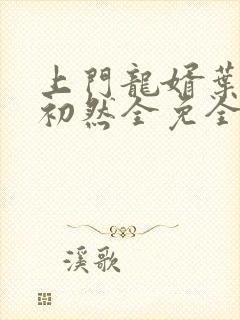 上門龍婿葉
初然全免全
溪歌